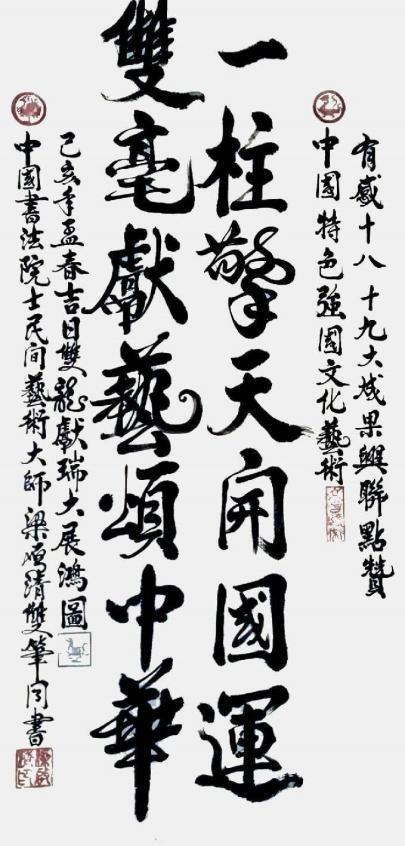 有感十八 十九大成果興聯點贊
中國特色強國文化藝術
一柱擎天開國運
雙毫獻藝頌中華
己亥年孟春吉日雙龍獻瑞大展鴻圖
中國書法院士民间藝術大師梁順清雙筆同書